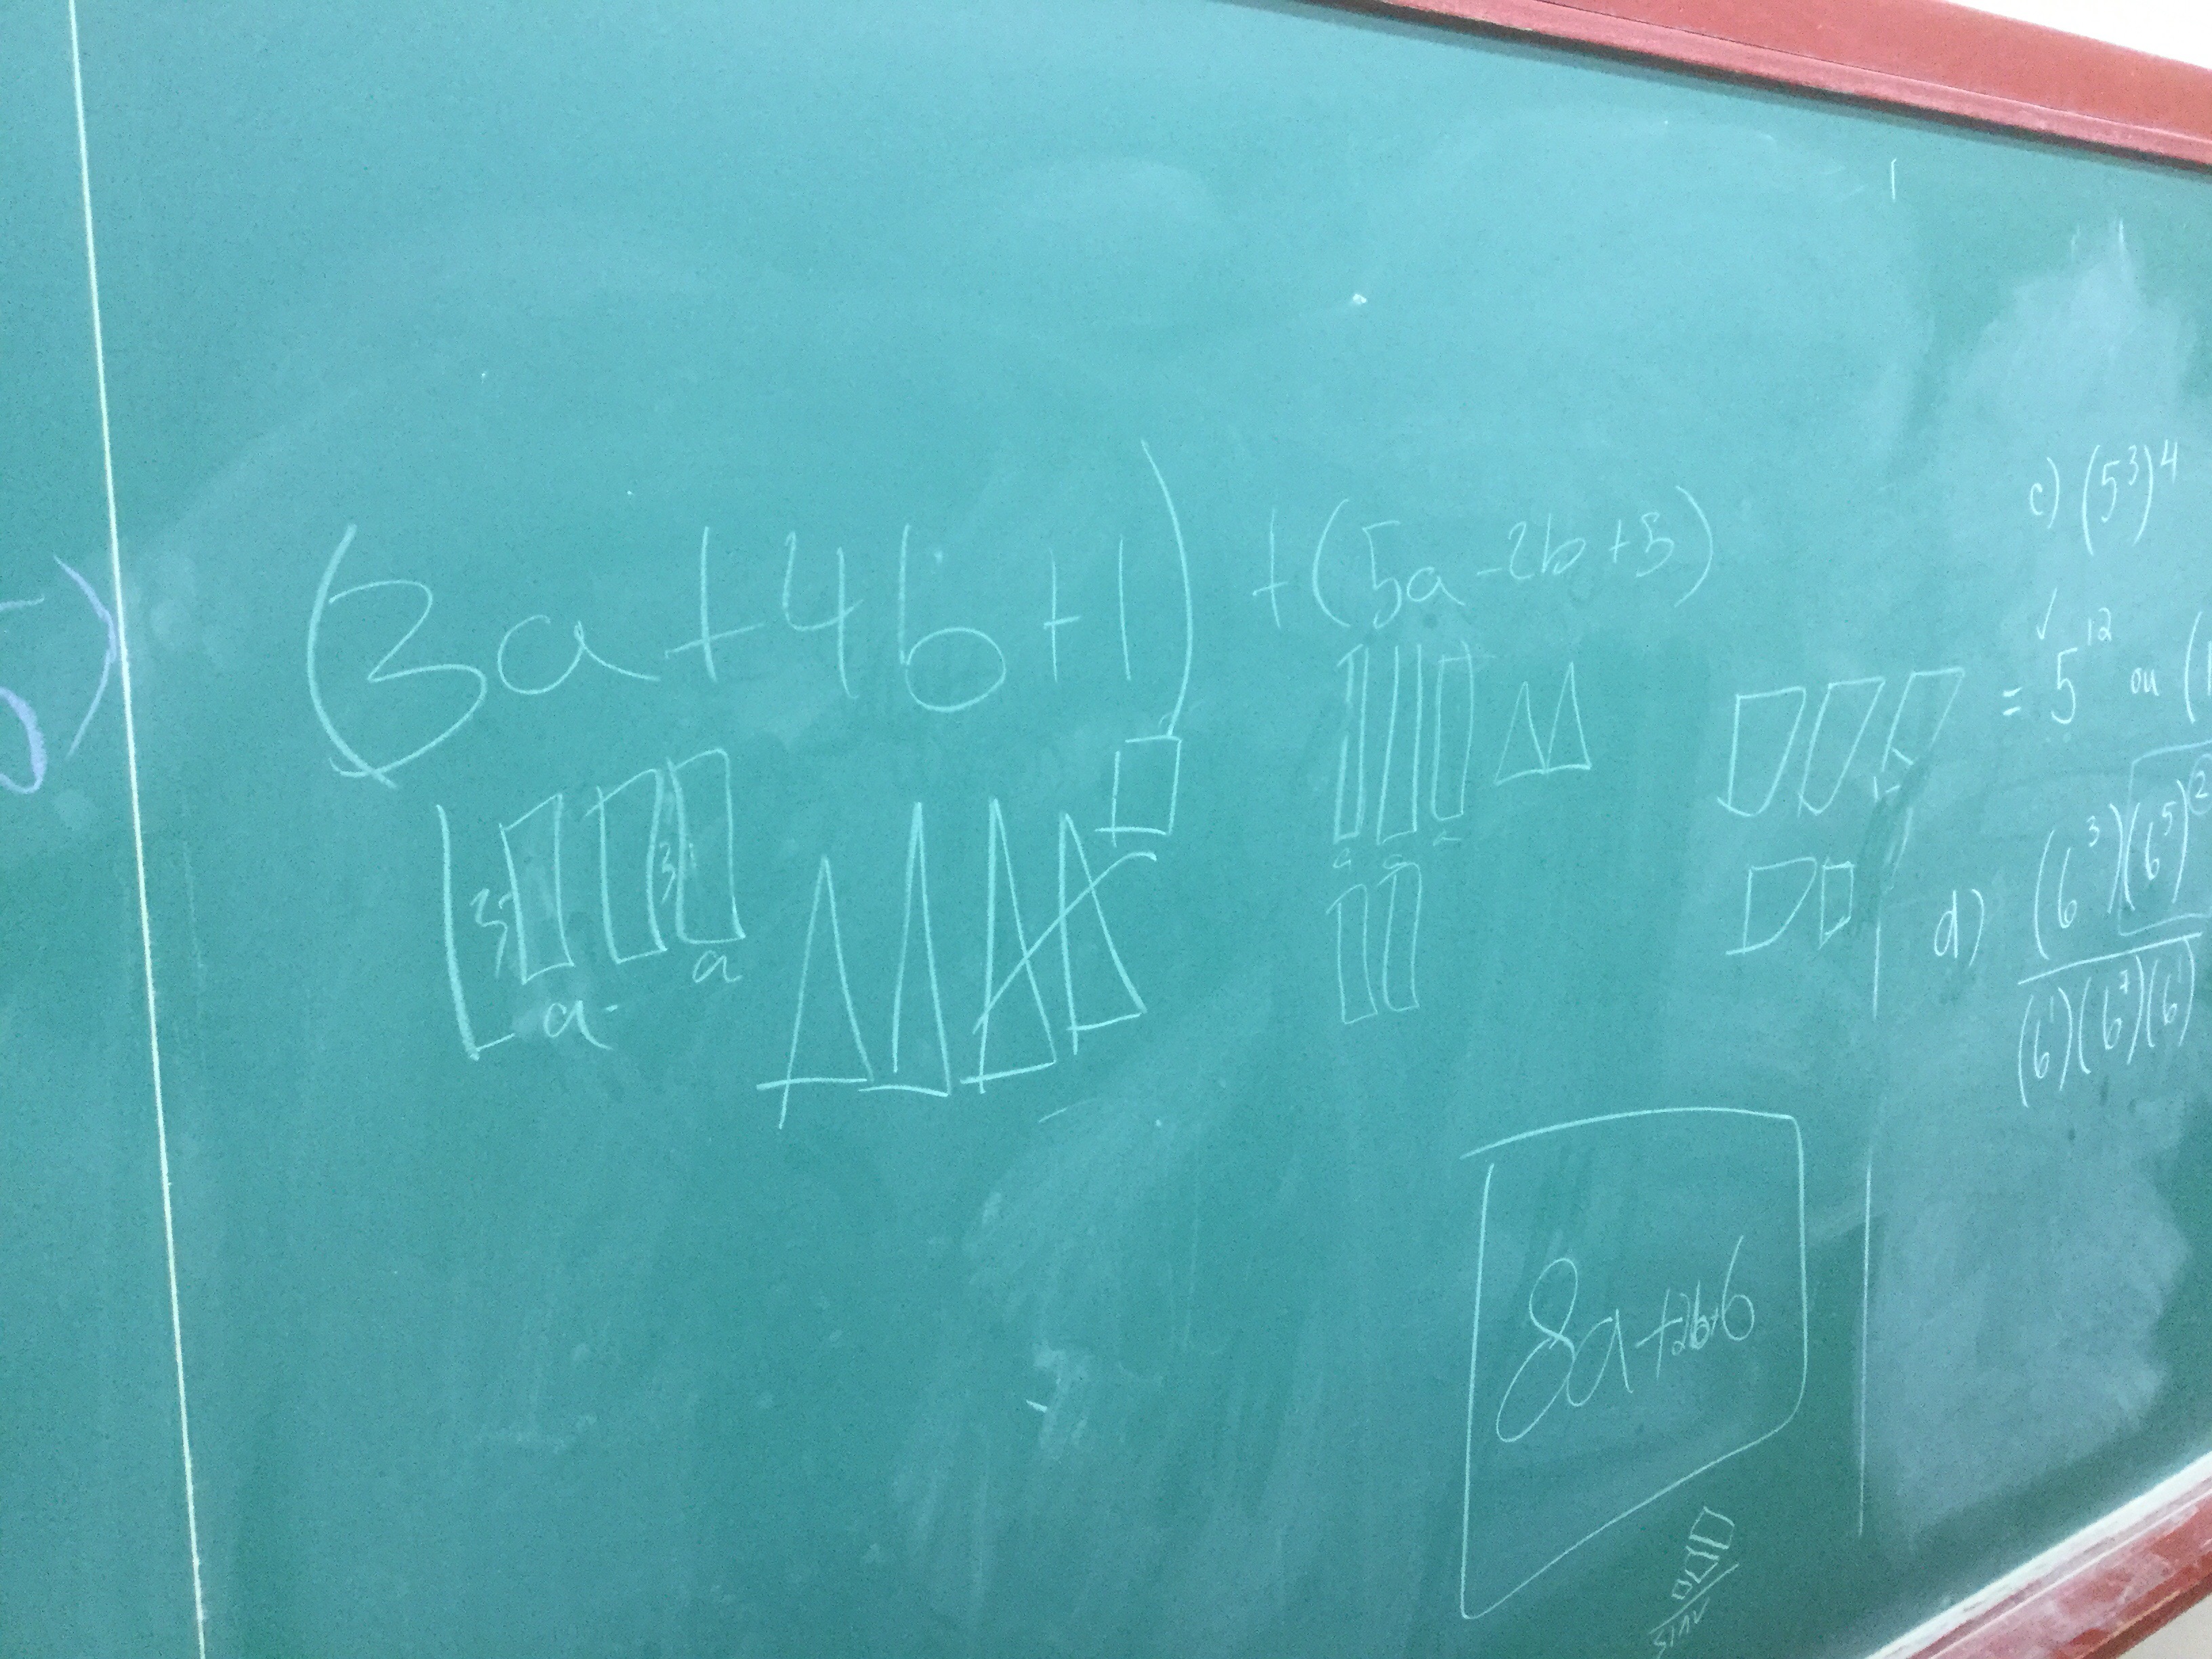 5)
(3a+4b+1) +(5a-2b+5)
3 3
a a
a a a
8a+2b+6
c) (5³)⁴
= 5¹² ou (
d) (6³)(6⁵)²
(6¹)(6⁷)(6¹)